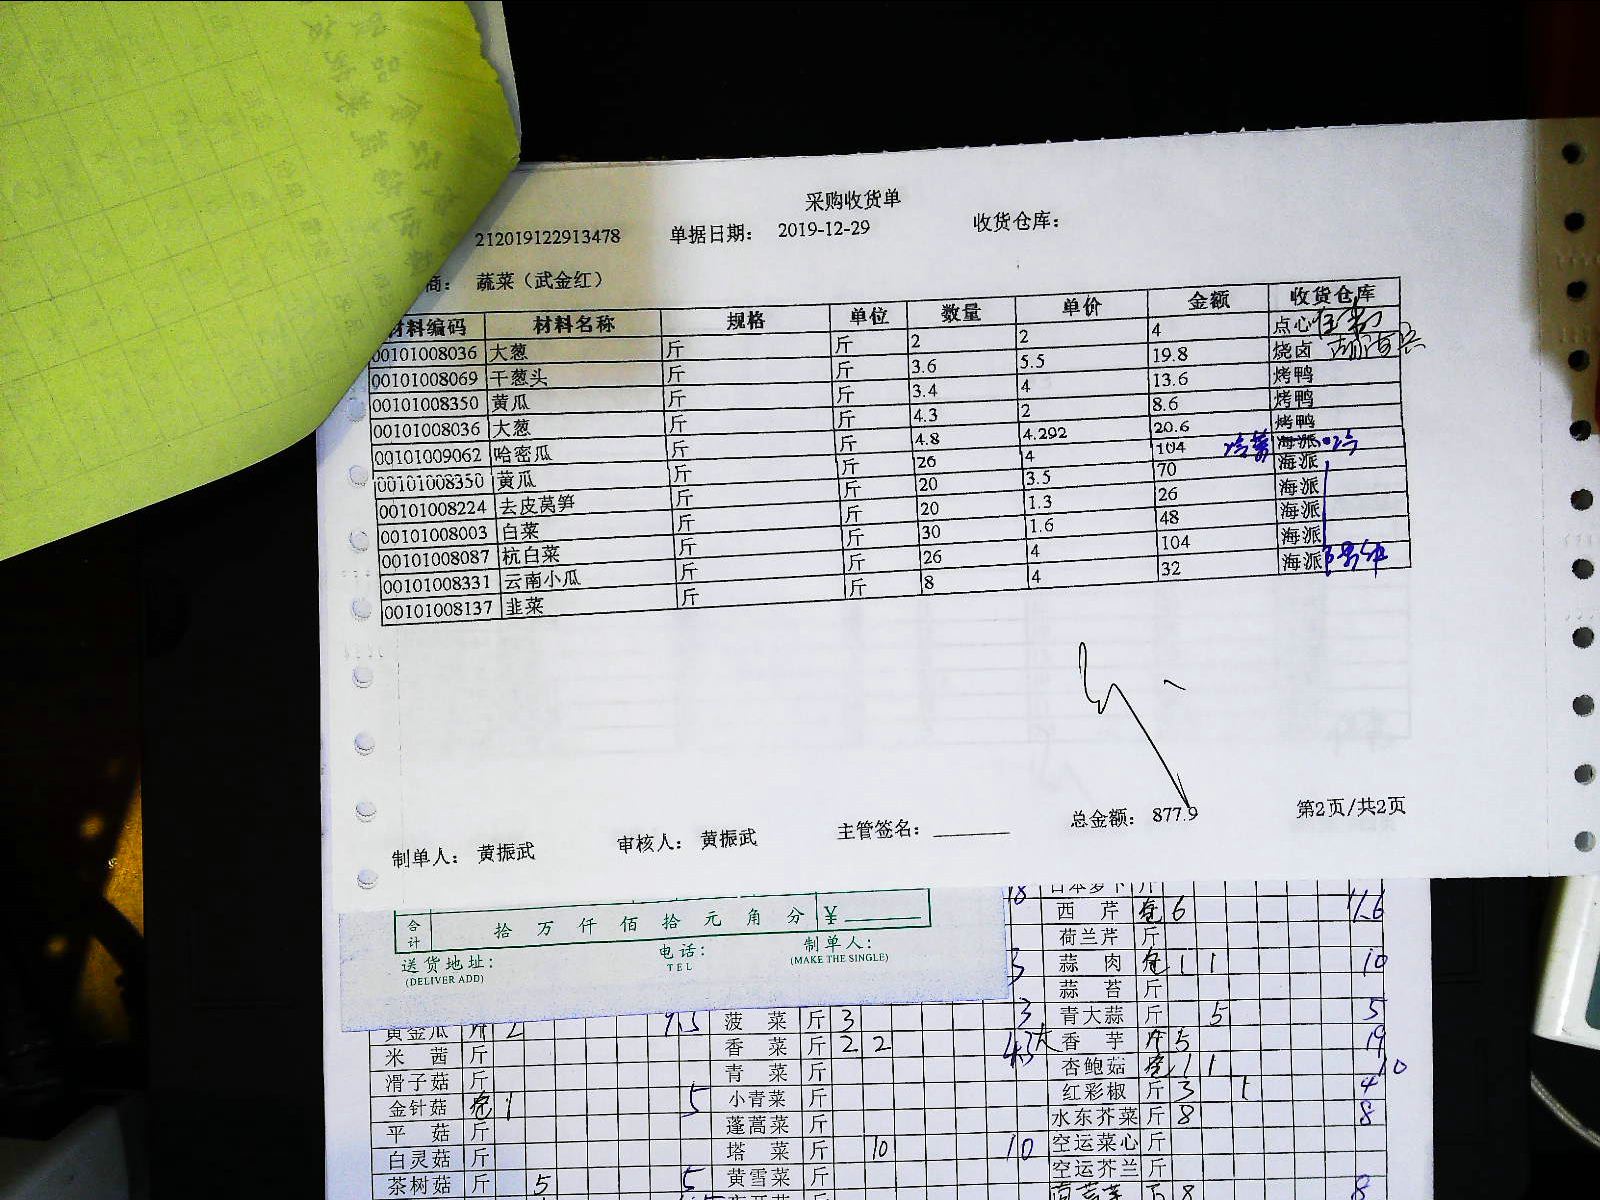 采购收货单
212019122913478 单据日期： 2019-12-29 收货仓库：
商： 蔬菜（武金红）
材料编码 材料名称 规格 单位 数量 单价 金额 收货仓库
00101008036 大葱 斤 斤 2 2 4 点心
00101008069 干葱头 斤 斤 3.6 5.5 19.8 烧卤
00101008350 黄瓜 斤 斤 3.4 4 13.6 烤鸭
00101008036 大葱 斤 斤 4.3 2 8.6 烤鸭
00101009062 哈密瓜 斤 斤 4.8 4.292 20.6 烤鸭
00101008350 黄瓜 斤 斤 26 4 104 冷菜 海派
00101008224 去皮莴笋 斤 斤 20 3.5 70 海派
00101008003 白菜 斤 斤 20 1.3 26 海派
00101008087 杭白菜 斤 斤 30 1.6 48 海派
00101008331 云南小瓜 斤 斤 26 4 104 海派
00101008137 韭菜 斤 斤 8 4 32 海派
制单人： 黄振武 审核人： 黄振武 主管签名： 总金额： 877.9 第2页/共2页
合计 拾 万 仟 佰 拾 元 角 分 ¥
送货地址： 电话： 制单人：
(DELIVER ADD) TEL (MAKE THE SINGLE)
18 日本萝卜 斤
西 芹 6 11.6
荷兰芹 斤
3 蒜 肉 1 1 10
蒜 苔 斤
黄金瓜 2 9.5 菠 菜 斤 3 3 青大蒜 斤 5 5
米 茜 斤 香 菜 斤 2 2 香 芋 斤 5 19
滑子菇 斤 青 菜 斤 杏鲍菇 1 1 10
金针菇 1 5 小青菜 斤 红彩椒 斤 3 1 4
平 菇 斤 蓬蒿菜 斤 水东芥菜 斤 8 8
白灵菇 斤 塔 菜 斤 10 10 空运菜心 斤
茶树菇 斤 5 5 黄雪菜 斤 空运芥兰 斤
8 8